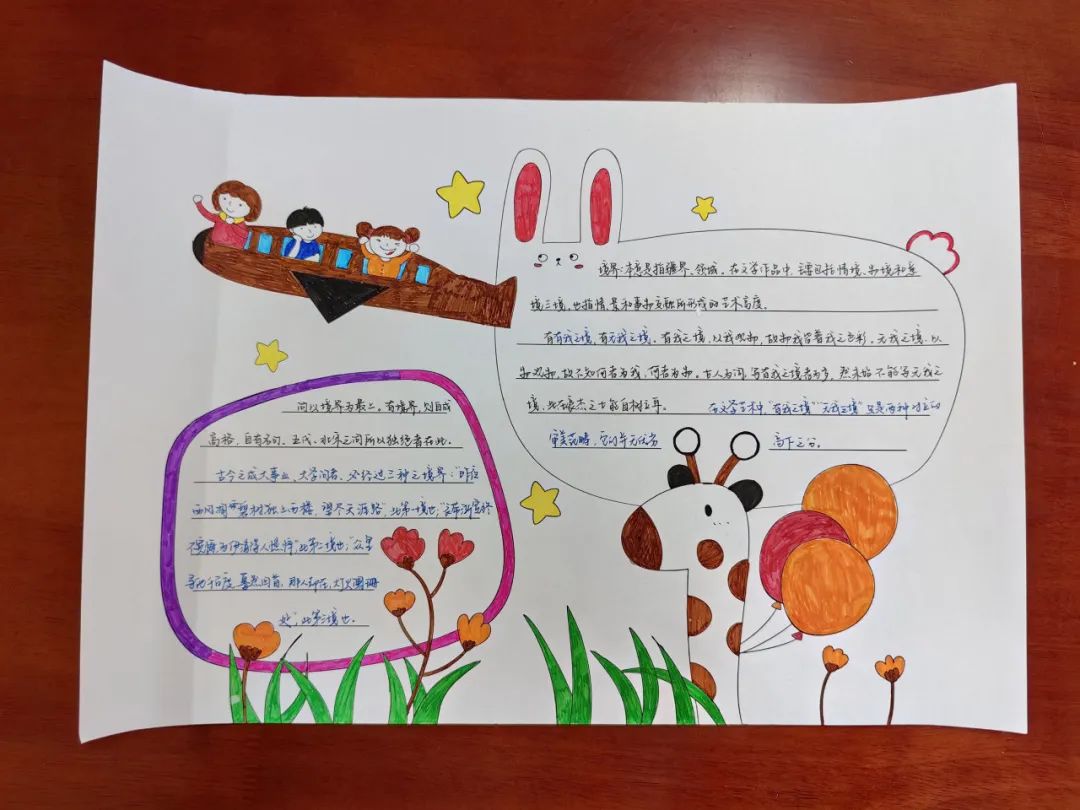 境界:本意是指疆界、领域。在文学作品中,主要包括情境、物境和意
境三境,也指情、景和事物交融所形成的艺术高度。
有有我之境,有无我之境。有我之境,以我观物,故物我皆著我之色彩。无我之境,以
物观物,故不知何者为我,何者为物。古人为词,写有我之境者为多,然未始不能写无我之
境,此在豪杰之士能自树立耳。 在文学艺术中,“有我之境”“无我之境”只是两种对立的
审美范畴,它们并无优劣 高下之分。
词以境界为最上。有境界,则自成
高格,自有名句。五代、北宋之词所以独绝者在此。
古今之成大事业、大学问者,必经过三种之境界:“昨夜
西风凋碧树。独上西楼,望尽天涯路”,此第一境也;“衣带渐宽终
不悔,为伊消得人憔悴”,此第二境也;“众里
寻他千百度,蓦然回首,那人却在,灯火阑珊
处”,此第三境也。